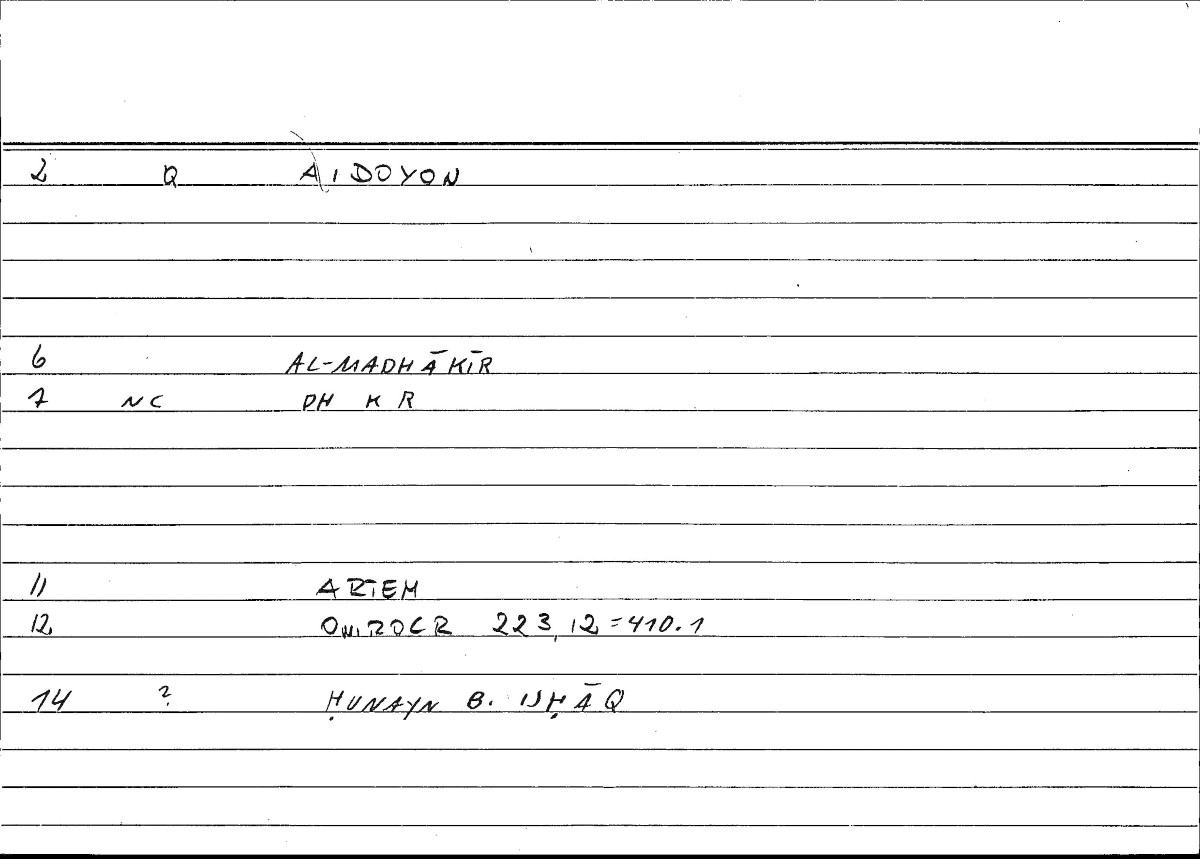 2 Q AIDOYON
6 AL-MADHĀKĪR
7 NC DH K R
11 ARTEM
12 ONIROCR 223,12=410.1
14 ? ḤUNAYN B. ISḤĀQ